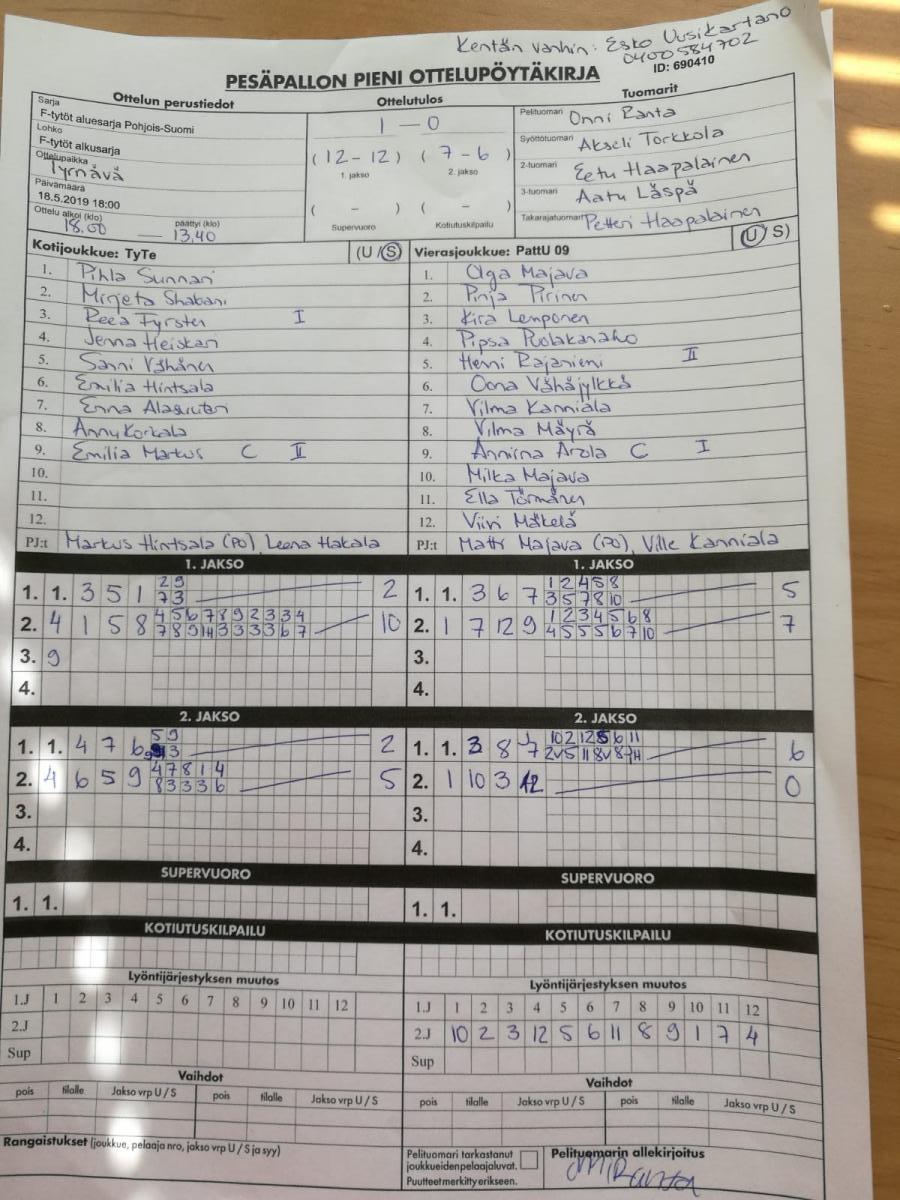 Kentän vanhin: Esko Uusikartano
0400584702
ID: 690410
PESÄPALLON PIENI OTTELUPÖYTÄKIRJA
Ottelun perustiedot Ottelutulos Tuomarit
Sarja
F-tytöt aluesarja Pohjois-Suomi
Lohko
F-tytöt alkusarja
Ottelupaikka
Tyrnävä
Päivämäärä
18.5.2019 18:00
Ottelu alkoi (klo) päättyi (klo)
18.00 — 13.40
1 — 0
(12 - 12) (7 - 6)
1. jakso 2. jakso
( - ) ( - )
Supervuoro Kotiutuskilpailu
Pelituomari Onni Ranta
Syöttötuomari Akseli Torkkola
2-tuomari Eetu Haapalainen
3-tuomari Aatu Läspä
Takarajatuomari Petteri Haapalainen
Kotijoukkue: TyTe (U / S)
1. Pihla Sunnari
2. Mirjeta Shabani
3. Reea Fyrsten I
4. Jenna Heiskari
5. Sanni Vähänen
6. Emilia Hintsala
7. Enna
8. Anny Korkala
9. Emilia Markus C II
10.
11.
12.
PJ:t Markus Hintsala (PO), Leena Hakala
Vierasjoukkue: PattU 09 (U / S)
1. Olga Majava
2. Pinja Piirinen
3. Kira Lemponen
4. Pipsa Puolakanaho
5. Henni Rajaniemi II
6. Oona Vähäjylkkä
7. Vilma Kanniala
8. Vilma Mäyrä
9. Anniina Arola C I
10. Milka Majava
11. Ella Törmänen
12. Viivi Mäkelä
PJ:t Matti Majava (PO), Ville Kanniala
1. JAKSO
1. 1. 3 5 1 2 9 2
7 3
2. 4 1 5 8 4 5 6 7 8 9 2 3 3 4 10
7 8 9 H 3 3 3 3 6 7
3. 9
4.
1. JAKSO
1. 1. 3 6 7 1 2 4 5 8 5
3 5 7 8 10
2. 1 7 12 9 1 2 3 4 5 6 8 7
4 5 5 5 6 7 10
3.
4.
2. JAKSO
1. 1. 4 7 6 5 9 2
3
2. 4 6 5 9 4 7 8 1 4 5
8 3 3 3 6
3.
4.
2. JAKSO
1. 1. 3 8 7 10 2 12 5 6 11 6
2. 1 10 3 12 0
3.
4.
SUPERVUORO
1. 1.
SUPERVUORO
1. 1.
KOTIUTUSKILPAILU
KOTIUTUSKILPAILU
Lyöntijärjestyksen muutos
1.J 1 2 3 4 5 6 7 8 9 10 11 12
2.J
Sup
Lyöntijärjestyksen muutos
1.J 1 2 3 4 5 6 7 8 9 10 11 12
2.J 10 2 3 12 5 6 11 8 9 1 7 4
Sup
Vaihdot
pois tilalle Jakso vrp U / S pois tilalle Jakso vrp U / S
Vaihdot
pois tilalle Jakso vrp U / S pois tilalle Jakso vrp U / S
Rangaistukset (joukkue, pelaaja nro, jakso vrp U / S ja syy)
Pelituomari tarkastanut
joukkueiden pelaajaluvat.
Puutteet merkitty erikseen.
Pelituomarin allekirjoitus